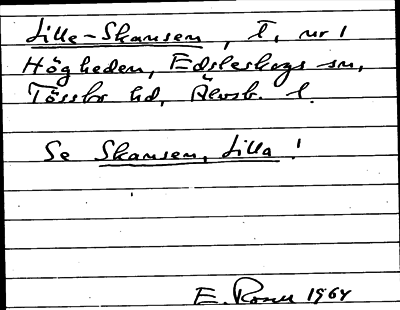 Lilla-Skansen, t. nr 1
Högheden, Edsleskogs sn,
Tössbo hd, Älvsb. l.
Se Skansen, Lilla!
E. Rosell 1964